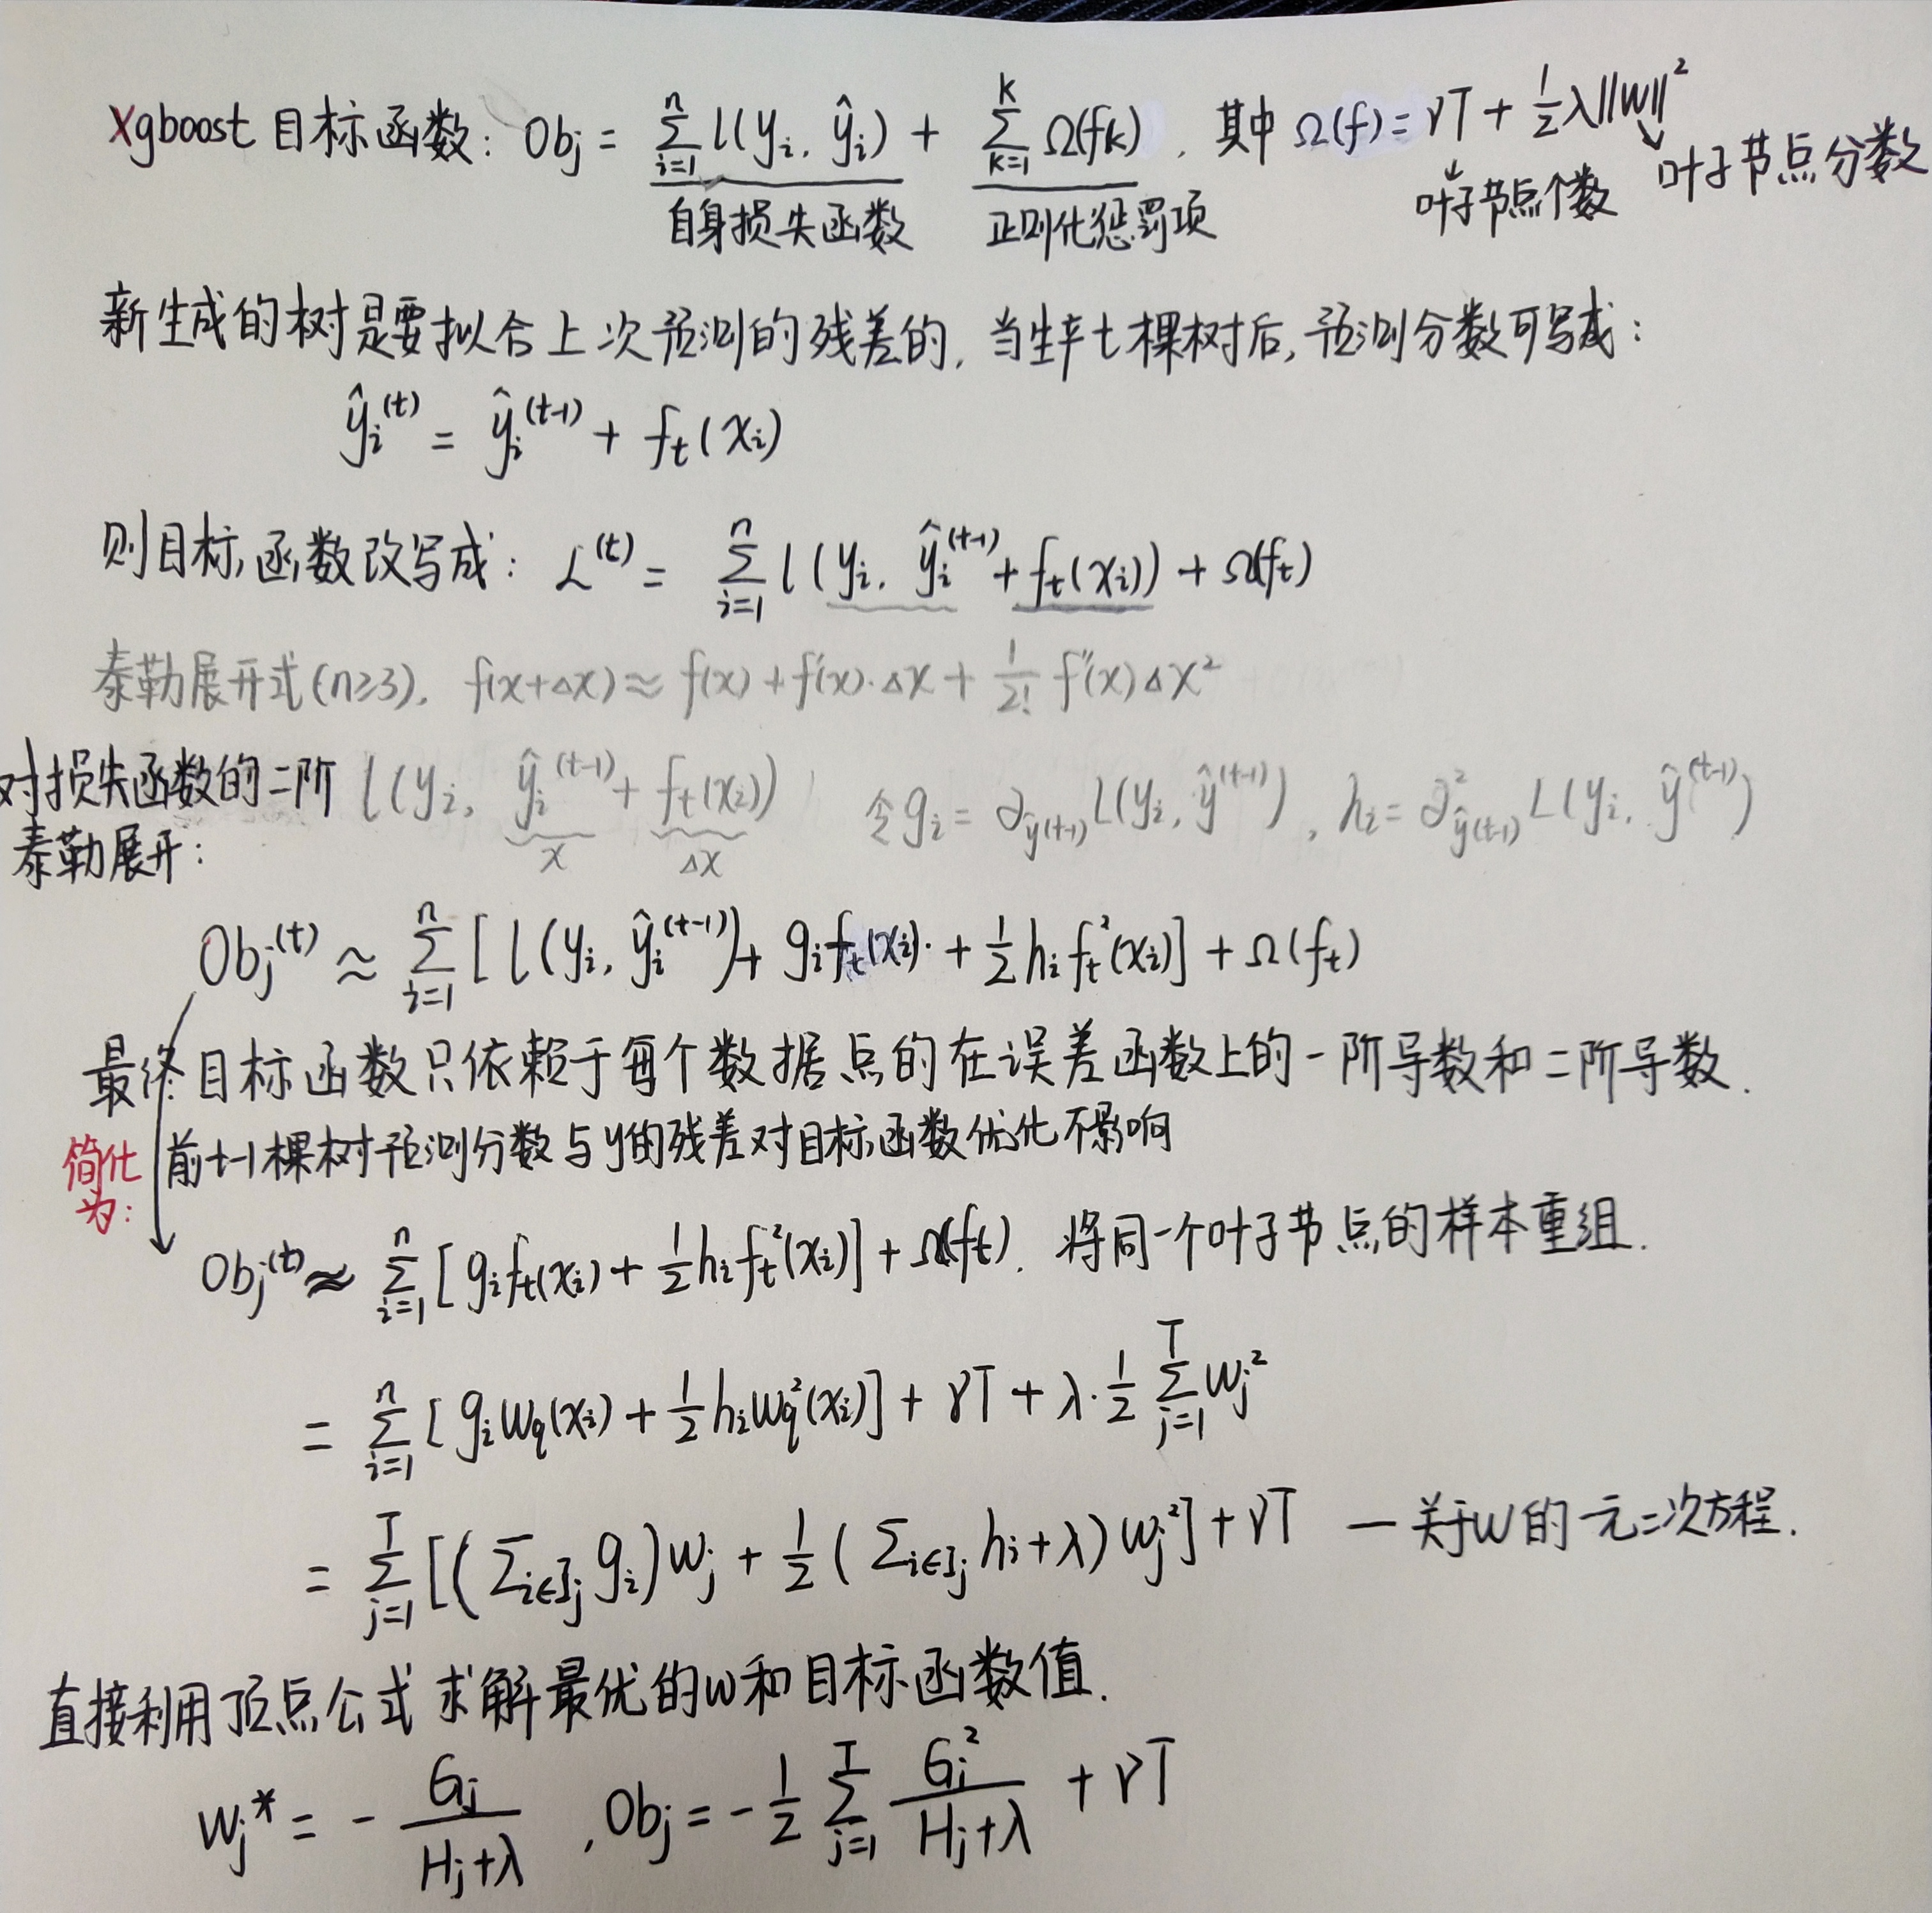 Xgboost 目标函数: Obj = ∑_{i=1}^{n} l(y_i, ŷ_i) + ∑_{k=1}^{K} Ω(f_k), 其中 Ω(f) = γT + ½λ‖w‖²
自身损失函数 正则化惩罚项 叶子节点个数 叶子节点分数
新生成的树是要拟合上次预测的残差的, 当生成t棵树后, 预测分数可写成:
ŷ_i^(t) = ŷ_i^(t-1) + f_t(x_i)
则目标函数改写成: L^(t) = ∑_{i=1}^{n} l(y_i, ŷ_i^(t-1) + f_t(x_i)) + Ω(f_t)
泰勒展开式(n≥3), f(x+Δx) ≈ f(x) + f'(x)·Δx + 1/2! f''(x)Δx²
对损失函数的二阶 l(y_i, ŷ_i^(t-1) + f_t(x_i)) 令g_i = ∂_{ŷ^(t-1)} L(y_i, ŷ^(t-1)), h_i = ∂²_{ŷ^(t-1)} L(y_i, ŷ^(t-1))
x Δx
泰勒展开:
Obj^(t) ≈ ∑_{i=1}^{n} [l(y_i, ŷ_i^(t-1)) + g_i f_t(x_i) + ½ h_i f_t²(x_i)] + Ω(f_t)
最终目标函数只依赖于每个数据点的在误差函数上的一阶导数和二阶导数.
简化为: 前t-1棵树预测分数与y的残差对目标函数优化不影响
Obj^(t) ≈ ∑_{i=1}^{n} [g_i f_t(x_i) + ½ h_i f_t²(x_i)] + Ω(f_t). 将同一个叶子节点的样本重组.
= ∑_{i=1}^{n} [g_i w_q(x_i) + ½ h_i w_q²(x_i)] + γT + λ·½ ∑_{j=1}^{T} w_j²
= ∑_{j=1}^{T} [(∑_{i∈I_j} g_i) w_j + ½ (∑_{i∈I_j} h_i + λ) w_j²] + γT — 关于w的一元二次方程.
直接利用顶点公式求解最优的w和目标函数值.
w_j* = - G_j / (H_j + λ) , Obj = -½ ∑_{j=1}^{T} G_j² / (H_j + λ) + γT